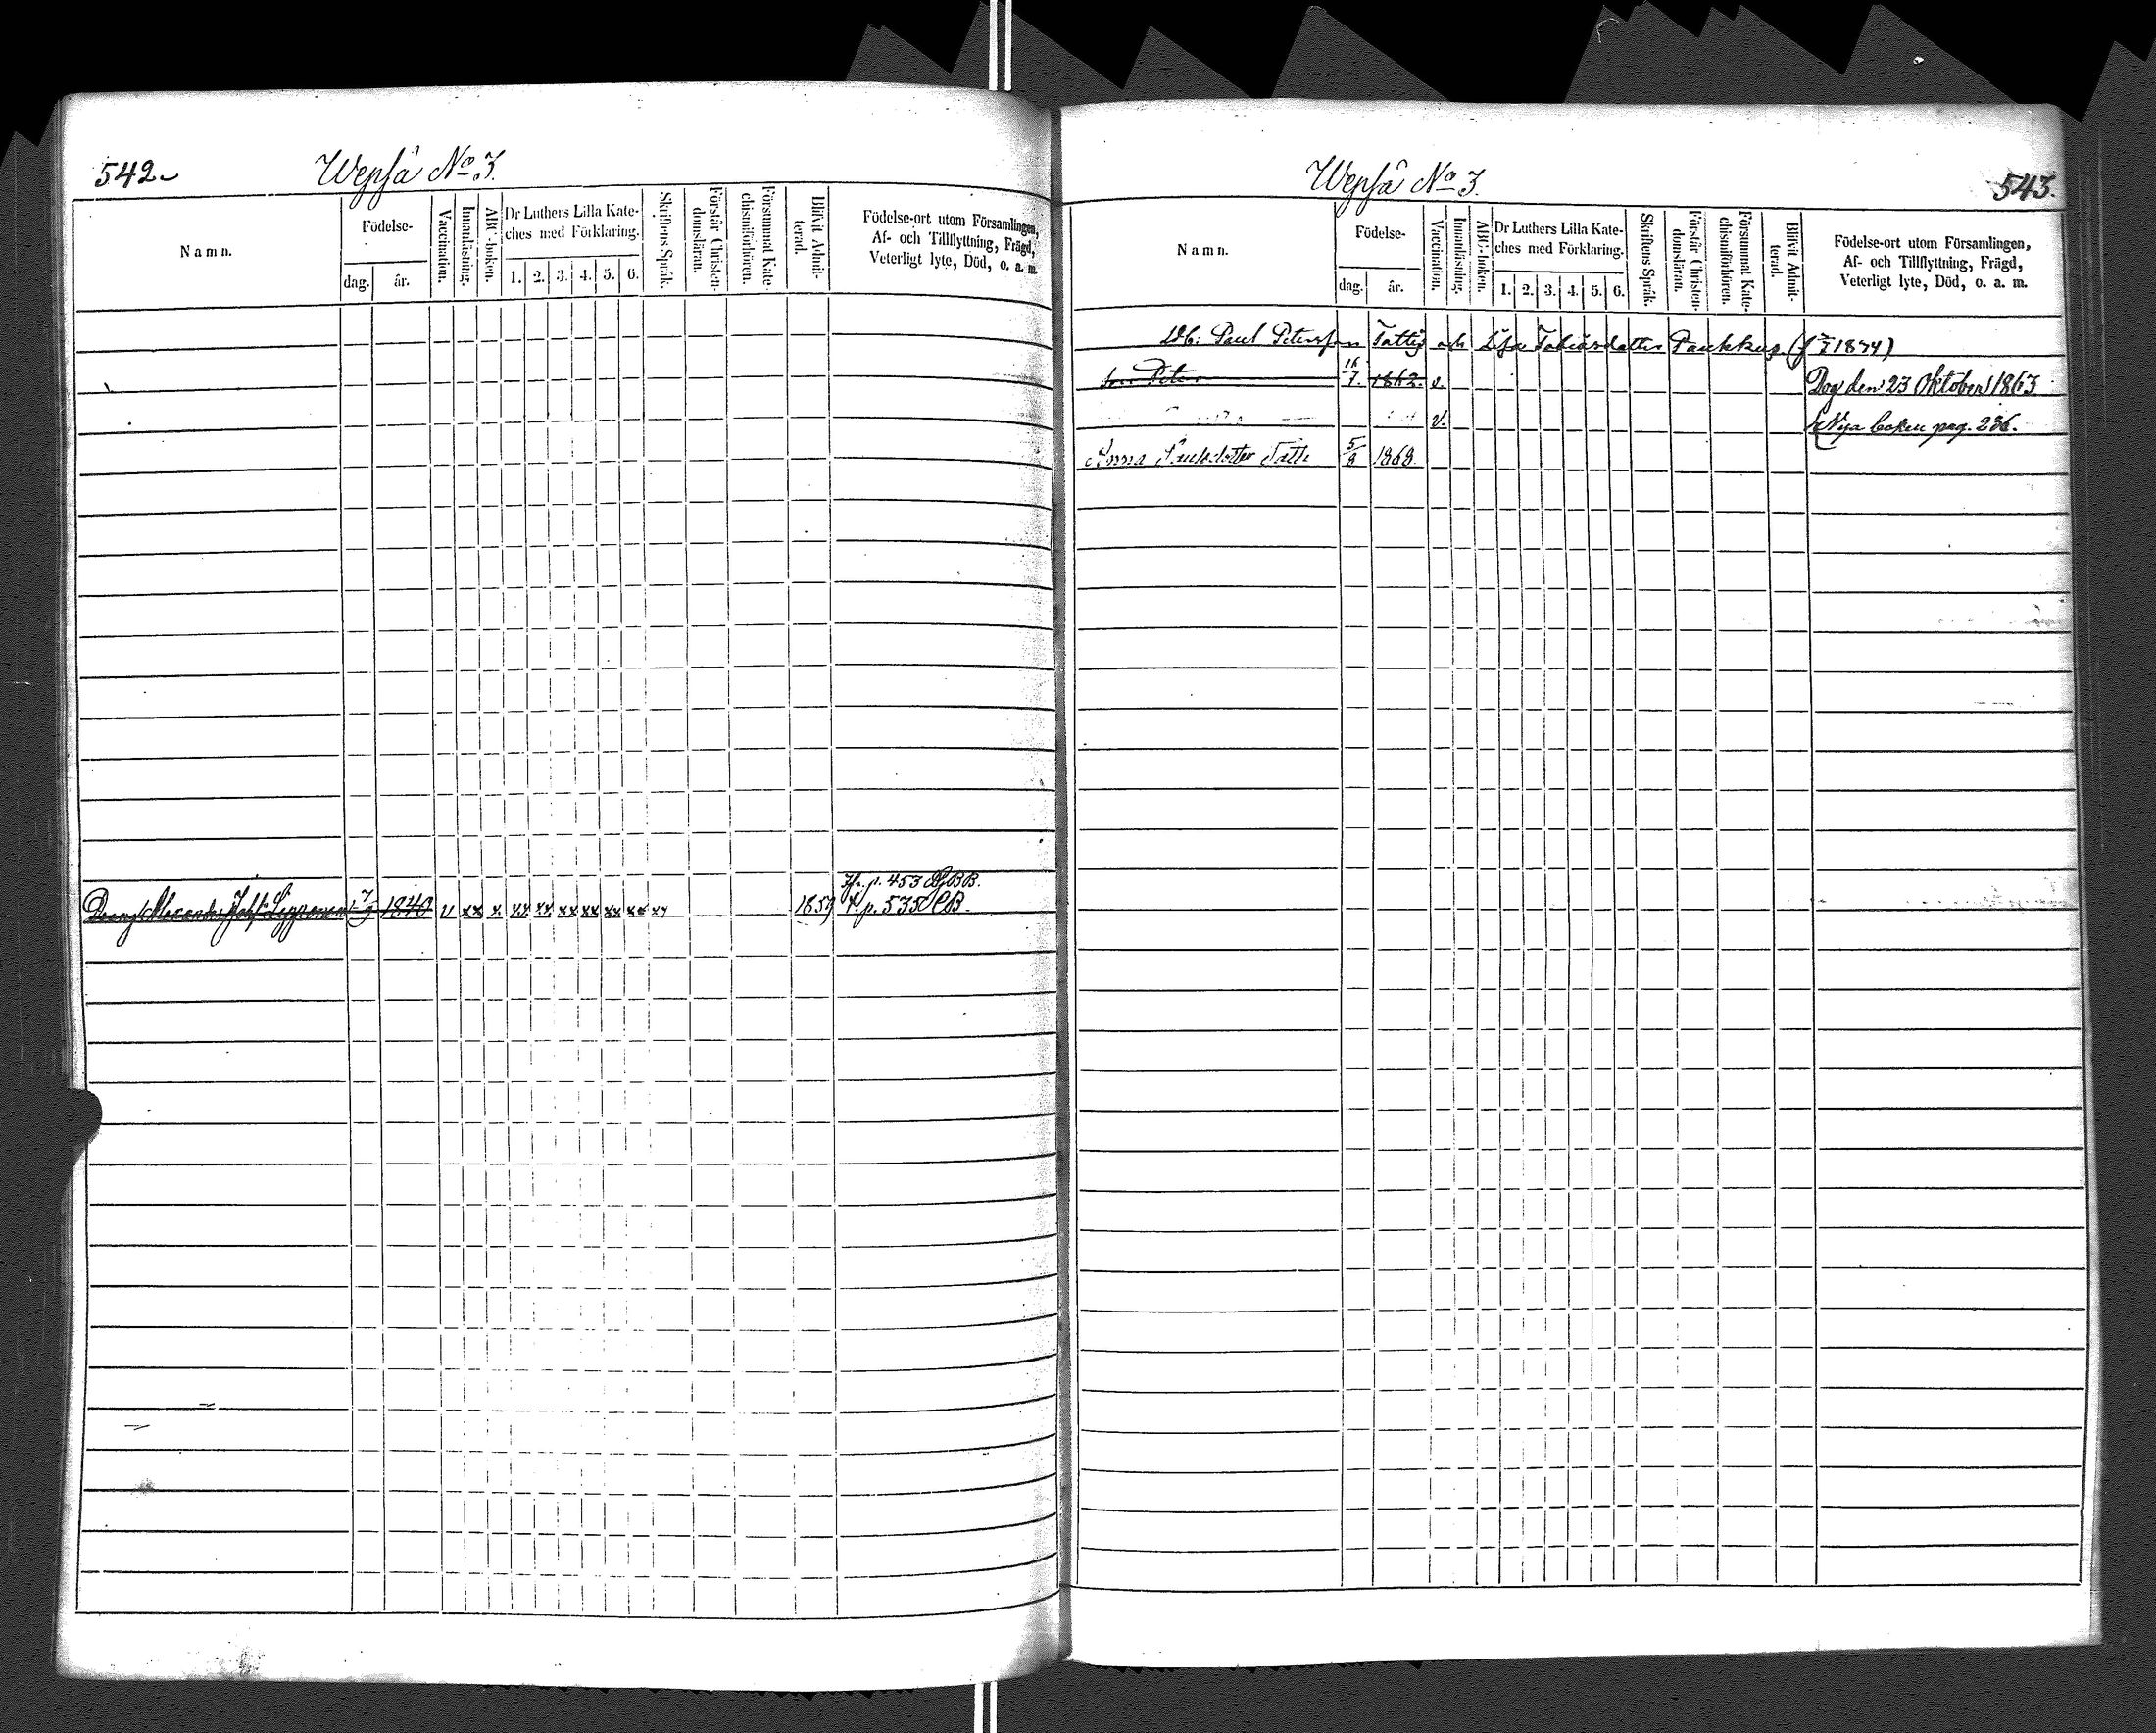 542
Wepsä No 3.
Namn.
Födelse-
dag.
år.
Vaccination.
Innanläsning.
ABC-boken.
Dr Luthers Lilla Kate-
ches med Förklaring.
1. 2. 3. 4. 5. 6.
Skriftens Språk.
Förstår Christen-
domsläran.
Försummat Kate-
chismiförhören.
Blifvit Admit-
terad.
Födelse-ort utom Församlingen,
Af- och Tillflyttning, Frägd,
Veterligt lyte, Död, o. a. m.
p. 453
Alexander Lipponen 7/9 1840 v xx x xx xx xx xx xx xx xx 1859 p. 535
543.
Wepsä No 3.
Namn.
Födelse-
dag.
år.
Vaccination.
Innanläsning.
ABC-boken.
Dr Luthers Lilla Kate-
ches med Förklaring.
1. 2. 3. 4. 5. 6.
Skriftens Språk.
Förstår Christen-
domsläran.
Försummat Kate-
chismiförhören.
Blifvit Admit-
terad.
Födelse-ort utom Församlingen,
Af- och Tillflyttning, Frägd,
Veterligt lyte, Död, o. a. m.
Paul Petersson Tattis och Lisa Tobiasdotter Paukkus 1874)
son Peter 16/7. 1862. v. Dog den 23 Oktober 1863
v. Nya boken pag. 236.
Anna Paulsdotter 5/8 1868.